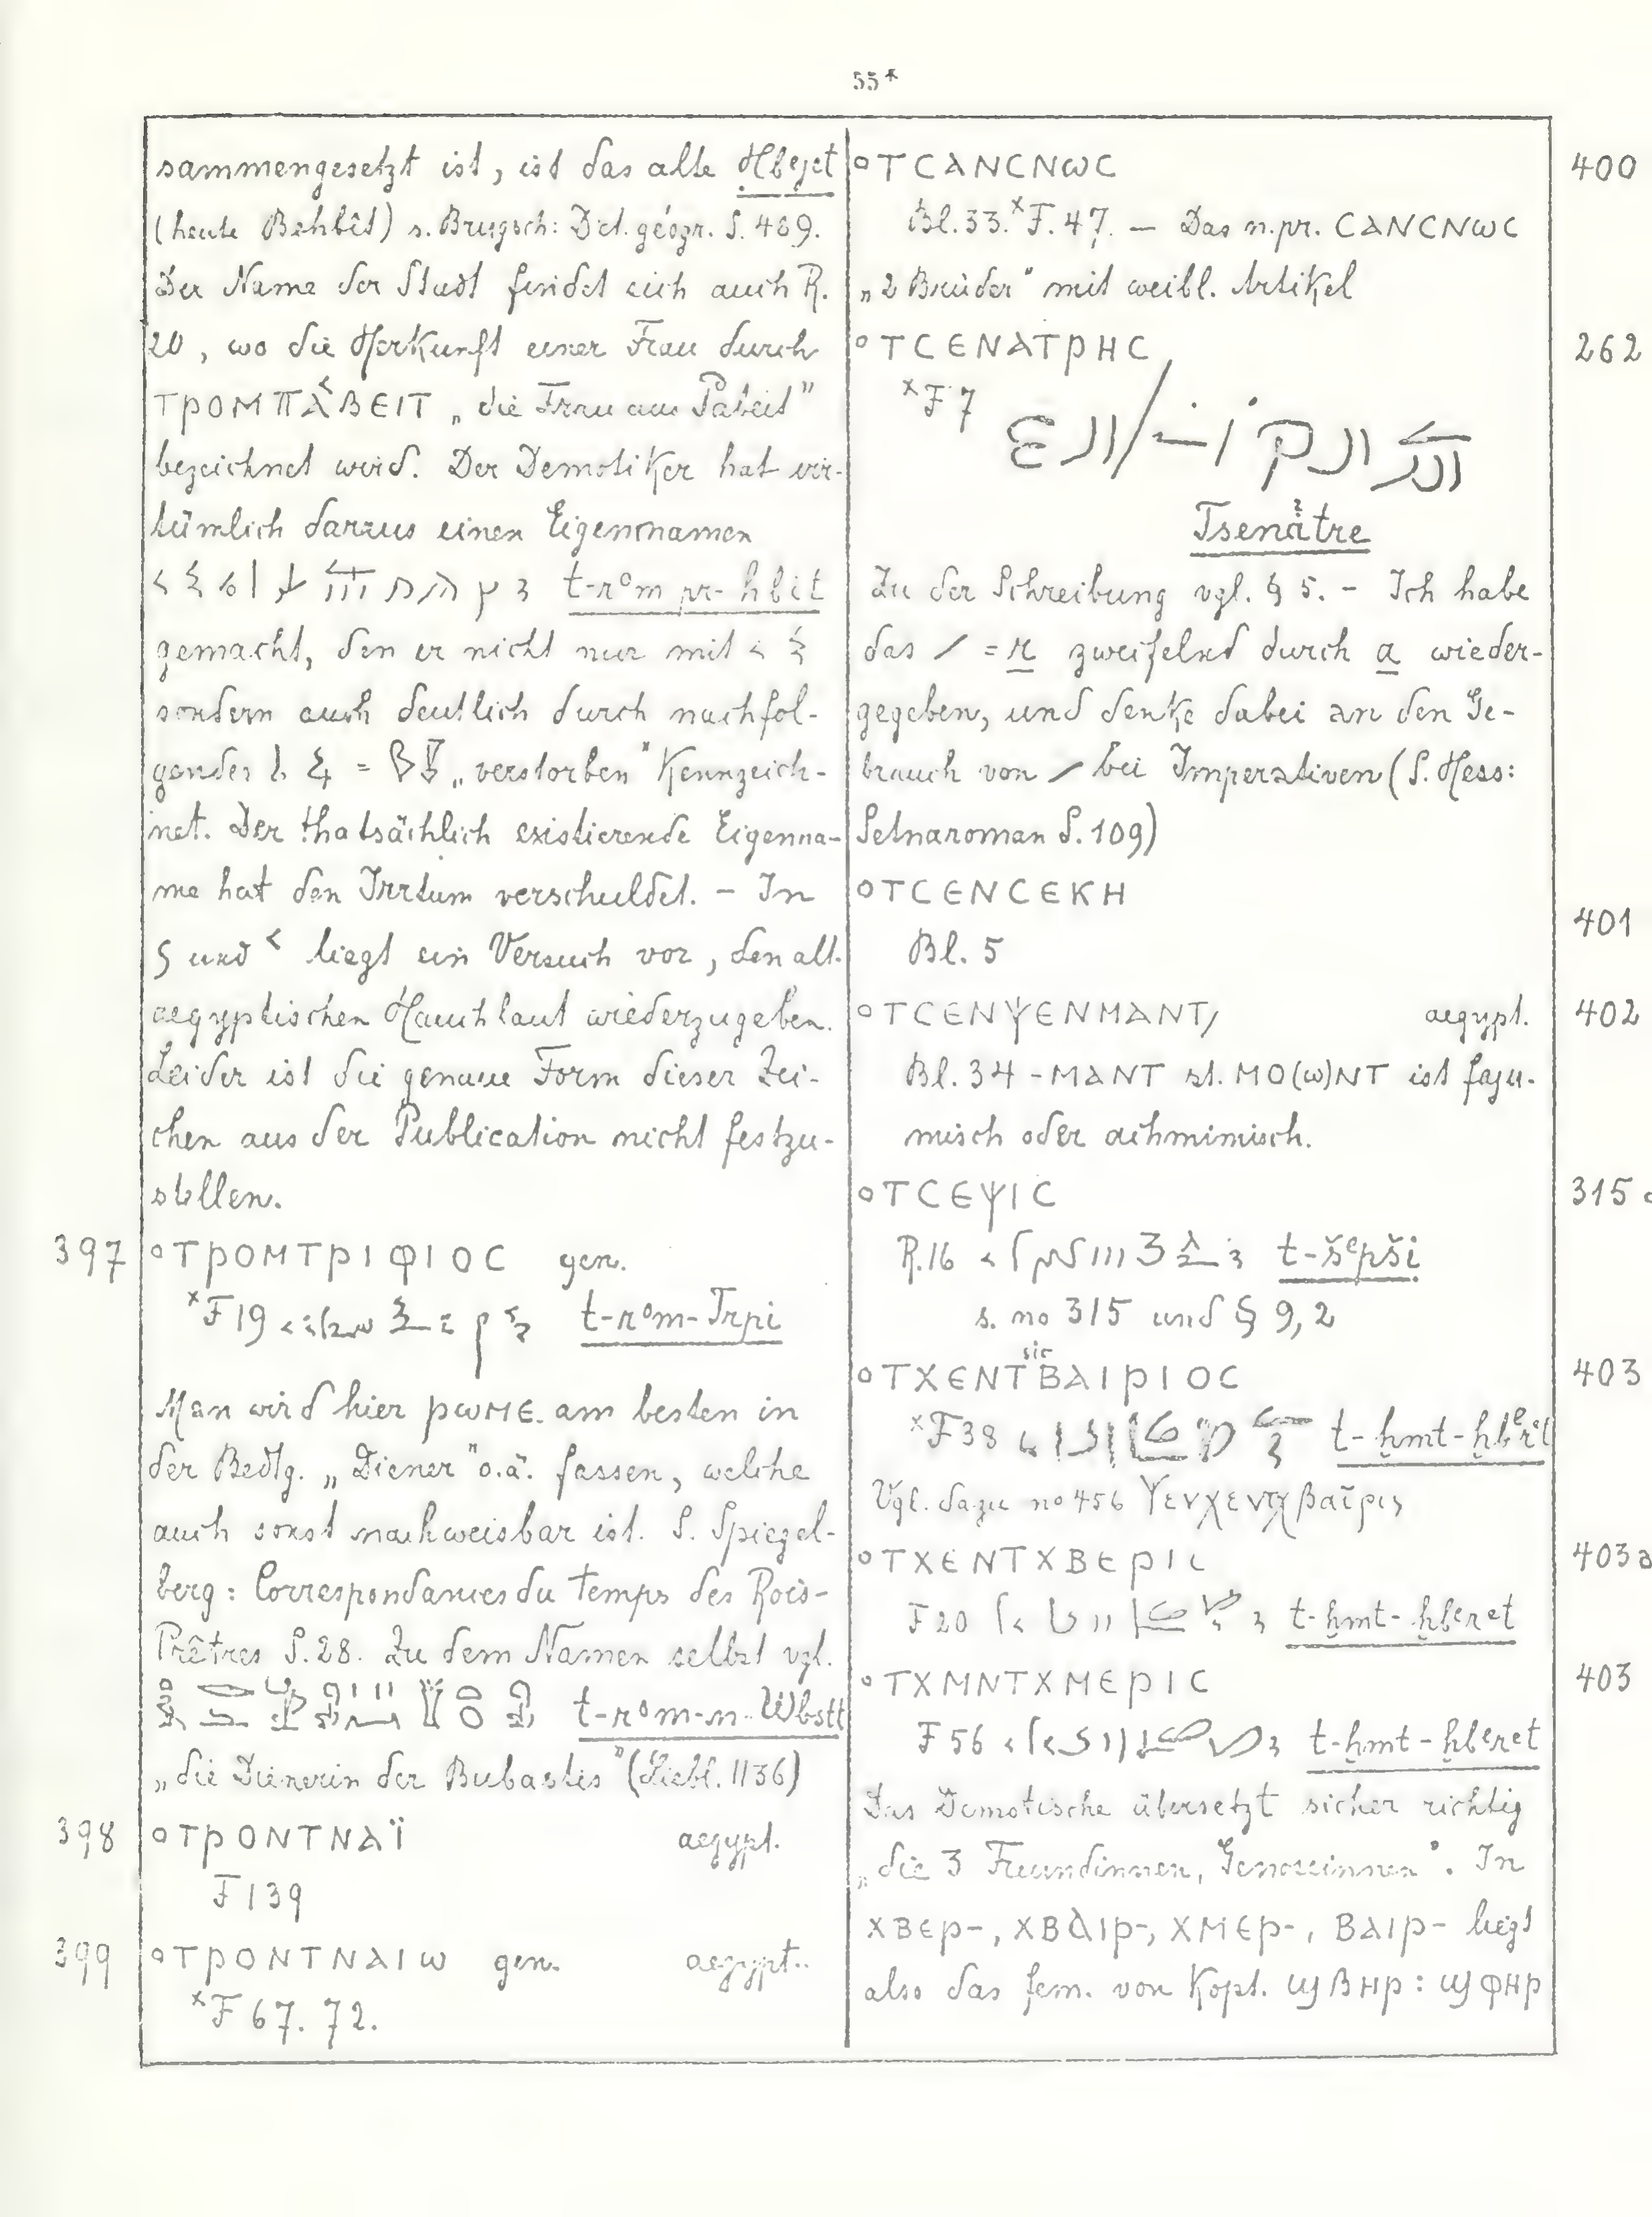 55*
sammengesetzt ist, ist das alte Ḥbejet
(heute Behbît) s. Brugsch: Dict. géogr. S. 489.
Der Name der Stadt findet sich auch R.
20, wo die Herkunft einer Frau durch
ΤΡΟΜΠΑΒΕΙΤ „die Frau aus Pabeit"
bezeichnet wird. Der Demotiker hat irr-
tümlich daraus einen Eigennamen
t-rᵒm pr-ḥbit
gemacht, den er nicht nur mit
sondern auch deutlich durch nachfol-
gendes = „verstorben" kennzeich-
net. Der thatsächlich existierende Eigenna-
me hat den Irrtum verschuldet. – In
ς und < liegt ein Versuch vor, den alt-
aegyptischen Hauchlaut wiederzugeben.
Leider ist die genaue Form dieser Zei-
chen aus der Publication nicht festzu-
stellen.
397 °ΤΡΟΜΤΡΙΦΙΟC gen.
ˣF19 t-rᵒm-Trpi
Man wird hier ΡωΜЄ am besten in
der Bedtg. „Diener" o.ä. fassen, welche
auch sonst nachweisbar ist. S. Spiegel-
berg: Correspondances du temps des Rois-
Prêtres S.28. Zu dem Namen selbst vgl.
t-rᵒm-n-Wbstt
„die Dienerin der Bubastis" (Liebl. 1136)
398 °ΤΡΟΝΤΝΑΪ aegypt.
F139
399 °ΤΡΟΝΤΝΑΙω gen. aegypt.
ˣF67. 72.
°ΤCΑΝCΝωC 400
Bl.33. ˣF.47. – Das n.pr. CΑΝCΝωC
„2 Brüder" mit weibl. Artikel
°ΤCЄΝΑΤΡΗC 262
ˣF7
Tsenåtre
Zu der Schreibung vgl. § 5. – Ich habe
das / = r zweifelnd durch a wieder-
gegeben, und denke dabei an den Ge-
brauch von / bei Imperativen (S. Hess:
Setnaroman S.109)
°ΤCЄΝCЄΚΗ 401
Bl. 5
°ΤCЄΝΨЄΝΜΑΝΤ/ aegypt. 402
Bl. 34 - ΜΑΝΤ st. ΜΟ(ω)ΝΤ ist faju-
misch oder achmimisch.
°ΤCЄΨΙC 315
R.16 t-šᵉpši
s. no 315 und § 9, 2
sic
°ΤΧЄΝΤΒΑΙΡΙΟC 403
ˣF38 t-ḫmt-ḫbᵉrt
Vgl. dazu no 456 Ψενχεντχβαῖρις
°ΤΧЄΝΤΧΒЄΡΙC 403a
F20 t-ḫmt-ḫbᵉret
°ΤΧΜΝΤΧΜЄΡΙC 403
F56 t-ḫmt-ḫbᵉret
Das Demotische übersetzt sicher richtig
„die 3 Freundinnen, Genossinnen". In
ΧΒЄΡ-, ΧΒΑΙΡ-, ΧΜЄΡ-, ΒΑΙΡ- liegt
also das fem. von Kopt. ϢΒΗΡ : ϢΦΗΡ